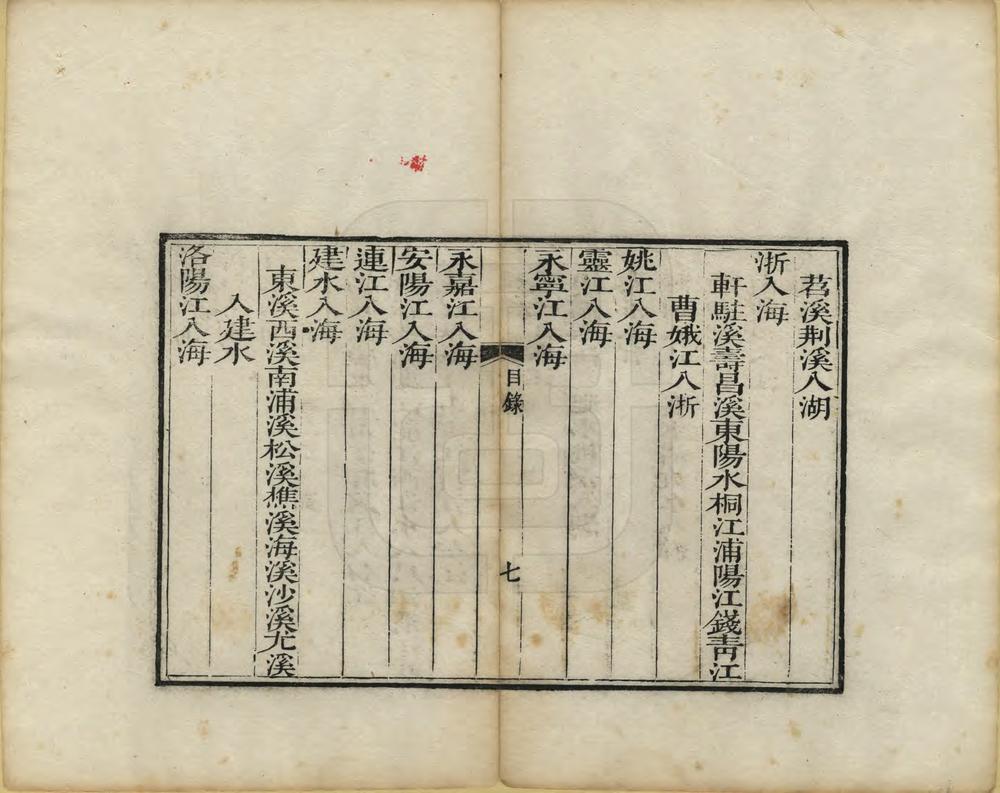 苕溪荆溪入湖
浙入海
軒駐溪壽昌溪東陽水桐江浦陽江錢靑江
曹娥江入浙
姚江入海
靈江入海
永寧江入海
目錄
七
永嘉江入海
安陽江入海
連江入海
建水入海
東溪西溪南浦溪松溪樵溪海溪沙溪尤溪
入建水
洛陽江入海